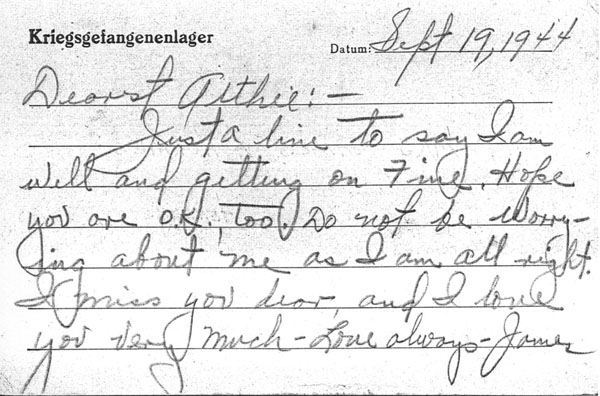 Kriegsgefangenenlager Datum: Sept 19, 1944
Dearest Althie:—
Just a line to say I am
well and getting on Fine. Hope
you are O.K., too. Do not be worry-
ing about me as I am all right.
I miss you dear, and I love
you very much - Love always - James